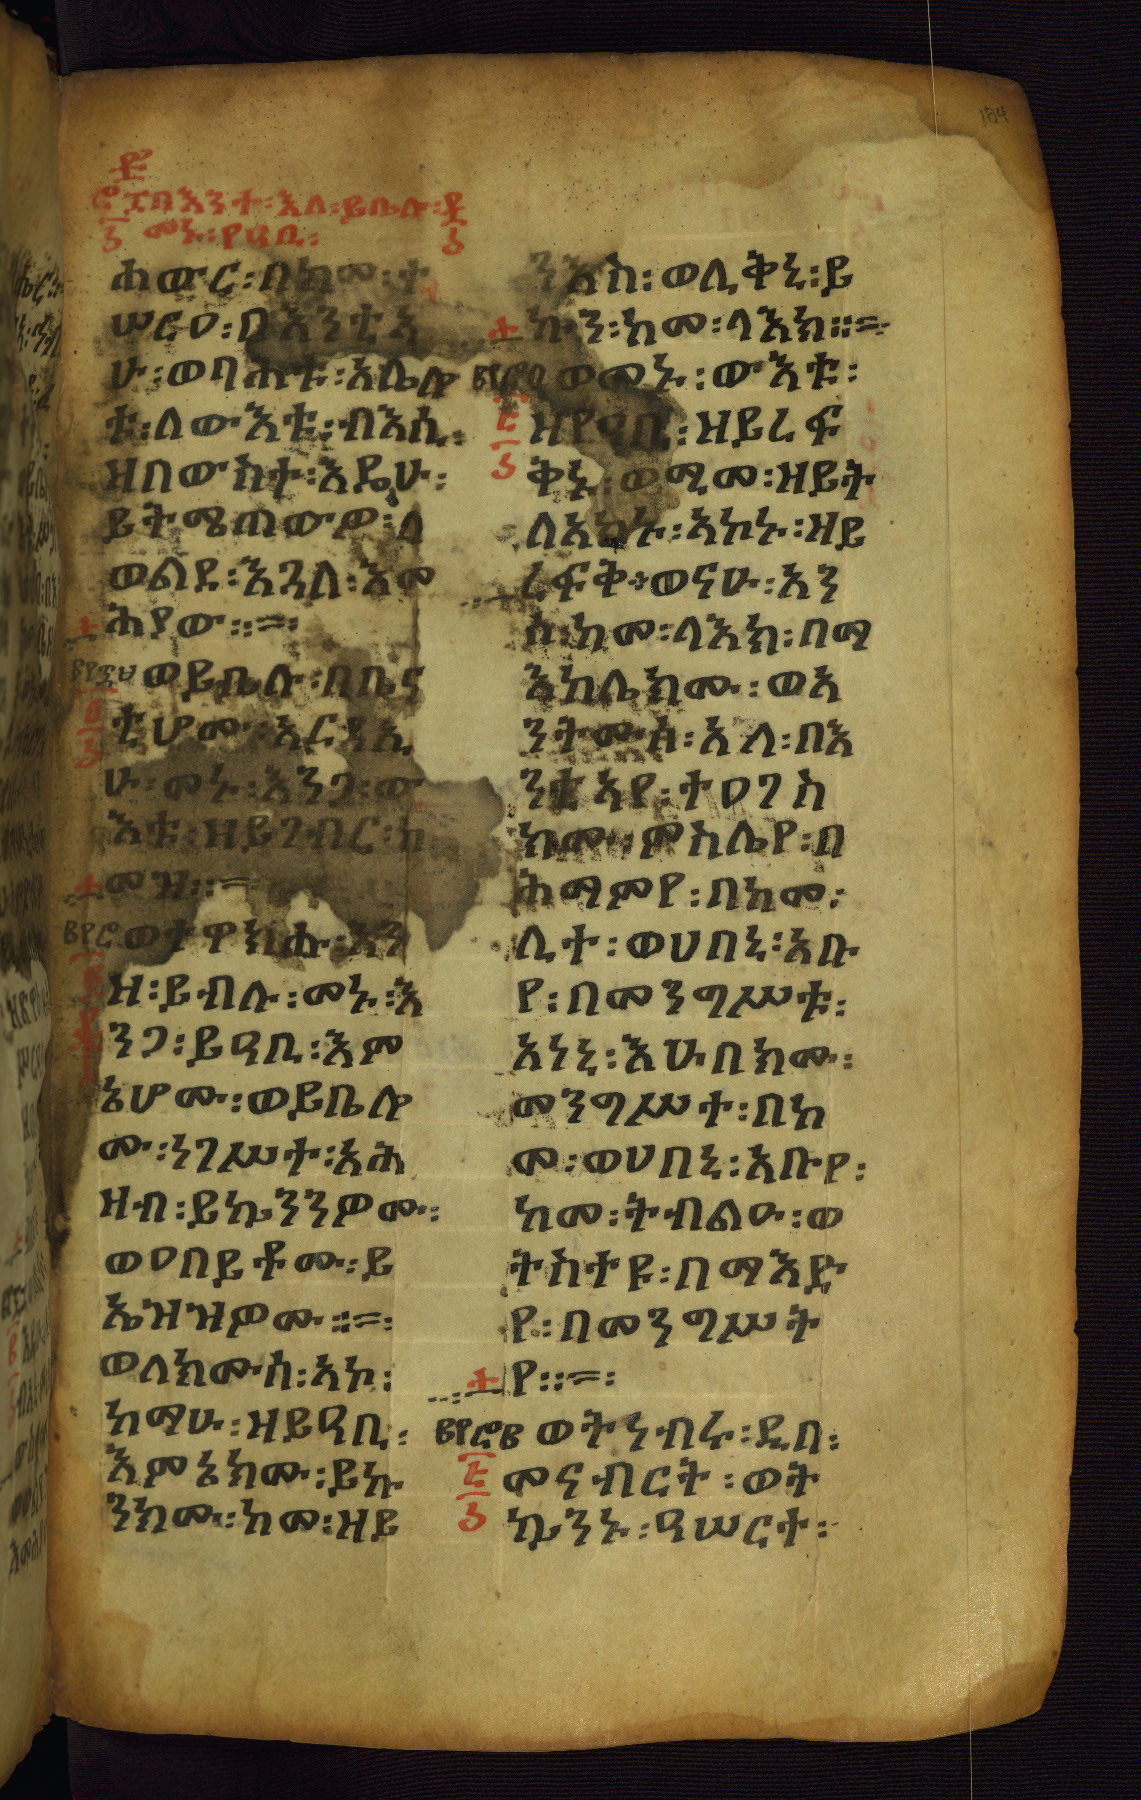 በእንተ፡እለ፡ይቤሉ፡
መኑ፡የዓቢ፡
ሐውር፡በከመ፡ተ
ሠርዐ፡በእንቲአ
ሁ፡ወባሕቱ፡አሌሎ
ቱ፡ለውእቱ፡ብእሲ፡
ዘበውስተ፡እዴሁ፡
ይትሜጠውዎ፡ለ
ወልደ፡እጓለ፡እመ
ሕያው።
ወይቤሉ፡በበይና
ቲሆሙ፡አርዳኢ
ሁ፡መኑ፡እንጋ፡ው
እቱ፡ዘይገብር፡ከ
መዝ።
ወተዋክሑ፡እን
ዘ፡ይብሉ፡መኑ፡እ
ንጋ፡ይዓቢ፡እም
ኔሆሙ፡ወይቤሎ
ሙ፡ነገሥተ፡አሕ
ዛብ፡ይኴንንዎሙ፡
ወዐበይቶሙ፡ይ
ኤዝዝዎሙ።
ወለክሙሰ፡አኮ፡
ከማሁ፡ዘይዓቢ፡
እምኔክሙ፡ይኩ
ንክሙ፡ከመ፡ዘይ
ንእስ፡ወሊቅኒ፡ይ
ኩን፡ከመ፡ላእክ።
ወመኑ፡ውእቱ፡
ዘየዓቢ፡ዘይረፍ
ቅኑ፡ወሚመ፡ዘይት
ለአከኑ፡አኮኑ፡ዘይ
ረፍቅ፡ወናሁ፡አን
ሰ፡ከመ፡ላእክ፡በማ
እከሌክሙ፡ወአ
ንትሙሰ፡እለ፡በእ
ንቲአየ፡ተዐገስ
ክሙ፡ምስሌየ፡በ
ሕማምየ፡በከመ፡
ሊተ፡ወሀበኒ፡አቡ
የ፡በመንግሥቱ፡
አነኒ፡እሁበክሙ፡
መንግሥተ፡በከ
መ፡ወሀበኒ፡አቡየ፡
ከመ፡ትብልዑ፡ወ
ትስተዩ፡በማእድ
የ፡በመንግሥት
የ።
ወትነብሩ፡ዲበ፡
መናብርት፡ወት
ኴንኑ፡ዓሠርተ፡